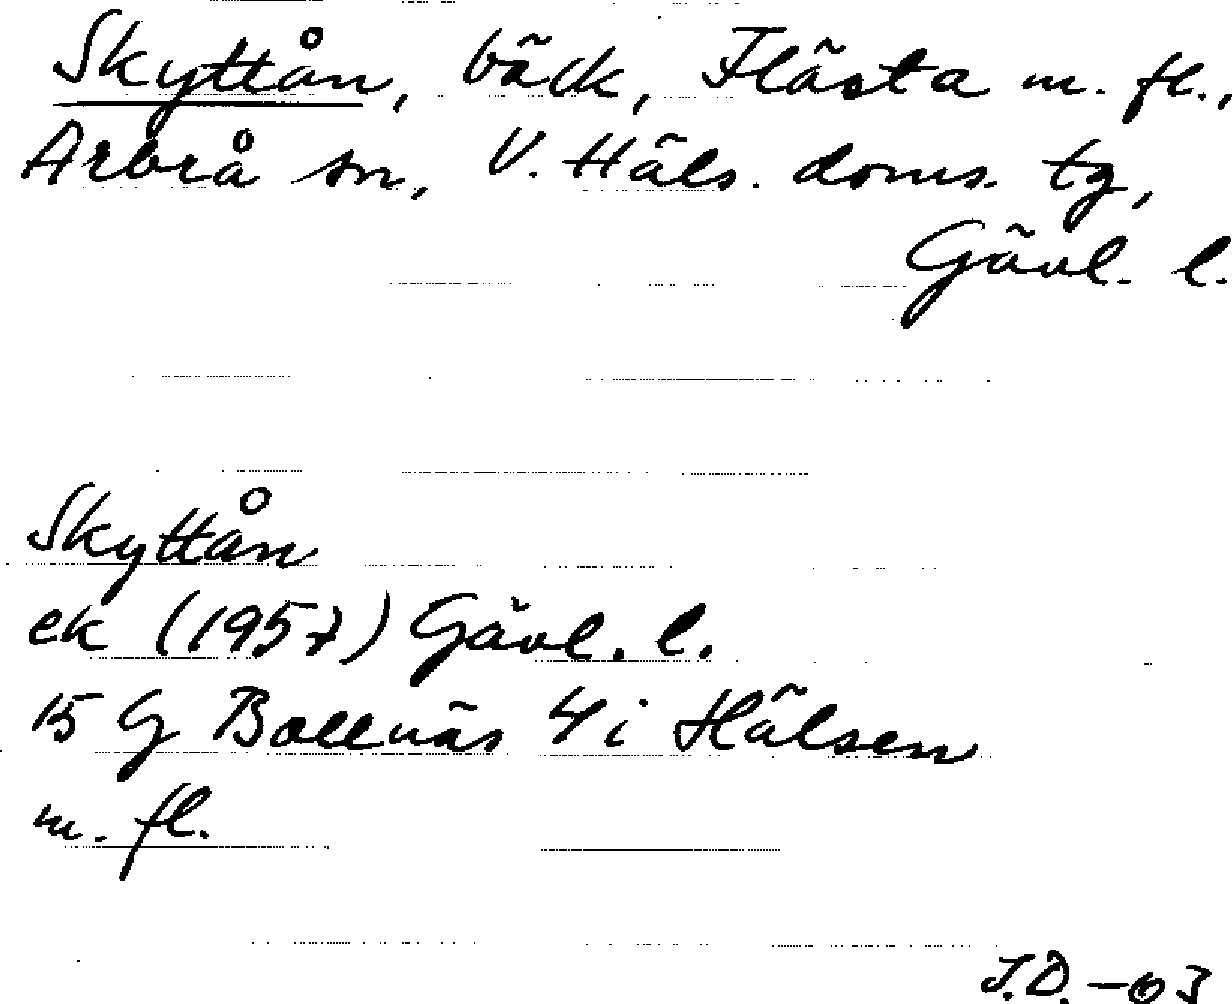 Skyttån, bäck, Flästa m. fl.,
Arbrå sn, V. Häls. doms. tg,
Gävl. l.
Skyttån
ek (1957) Gävl. l.
15 G Bollnäs 4 i Hälsen
m. fl.
J.D. -03